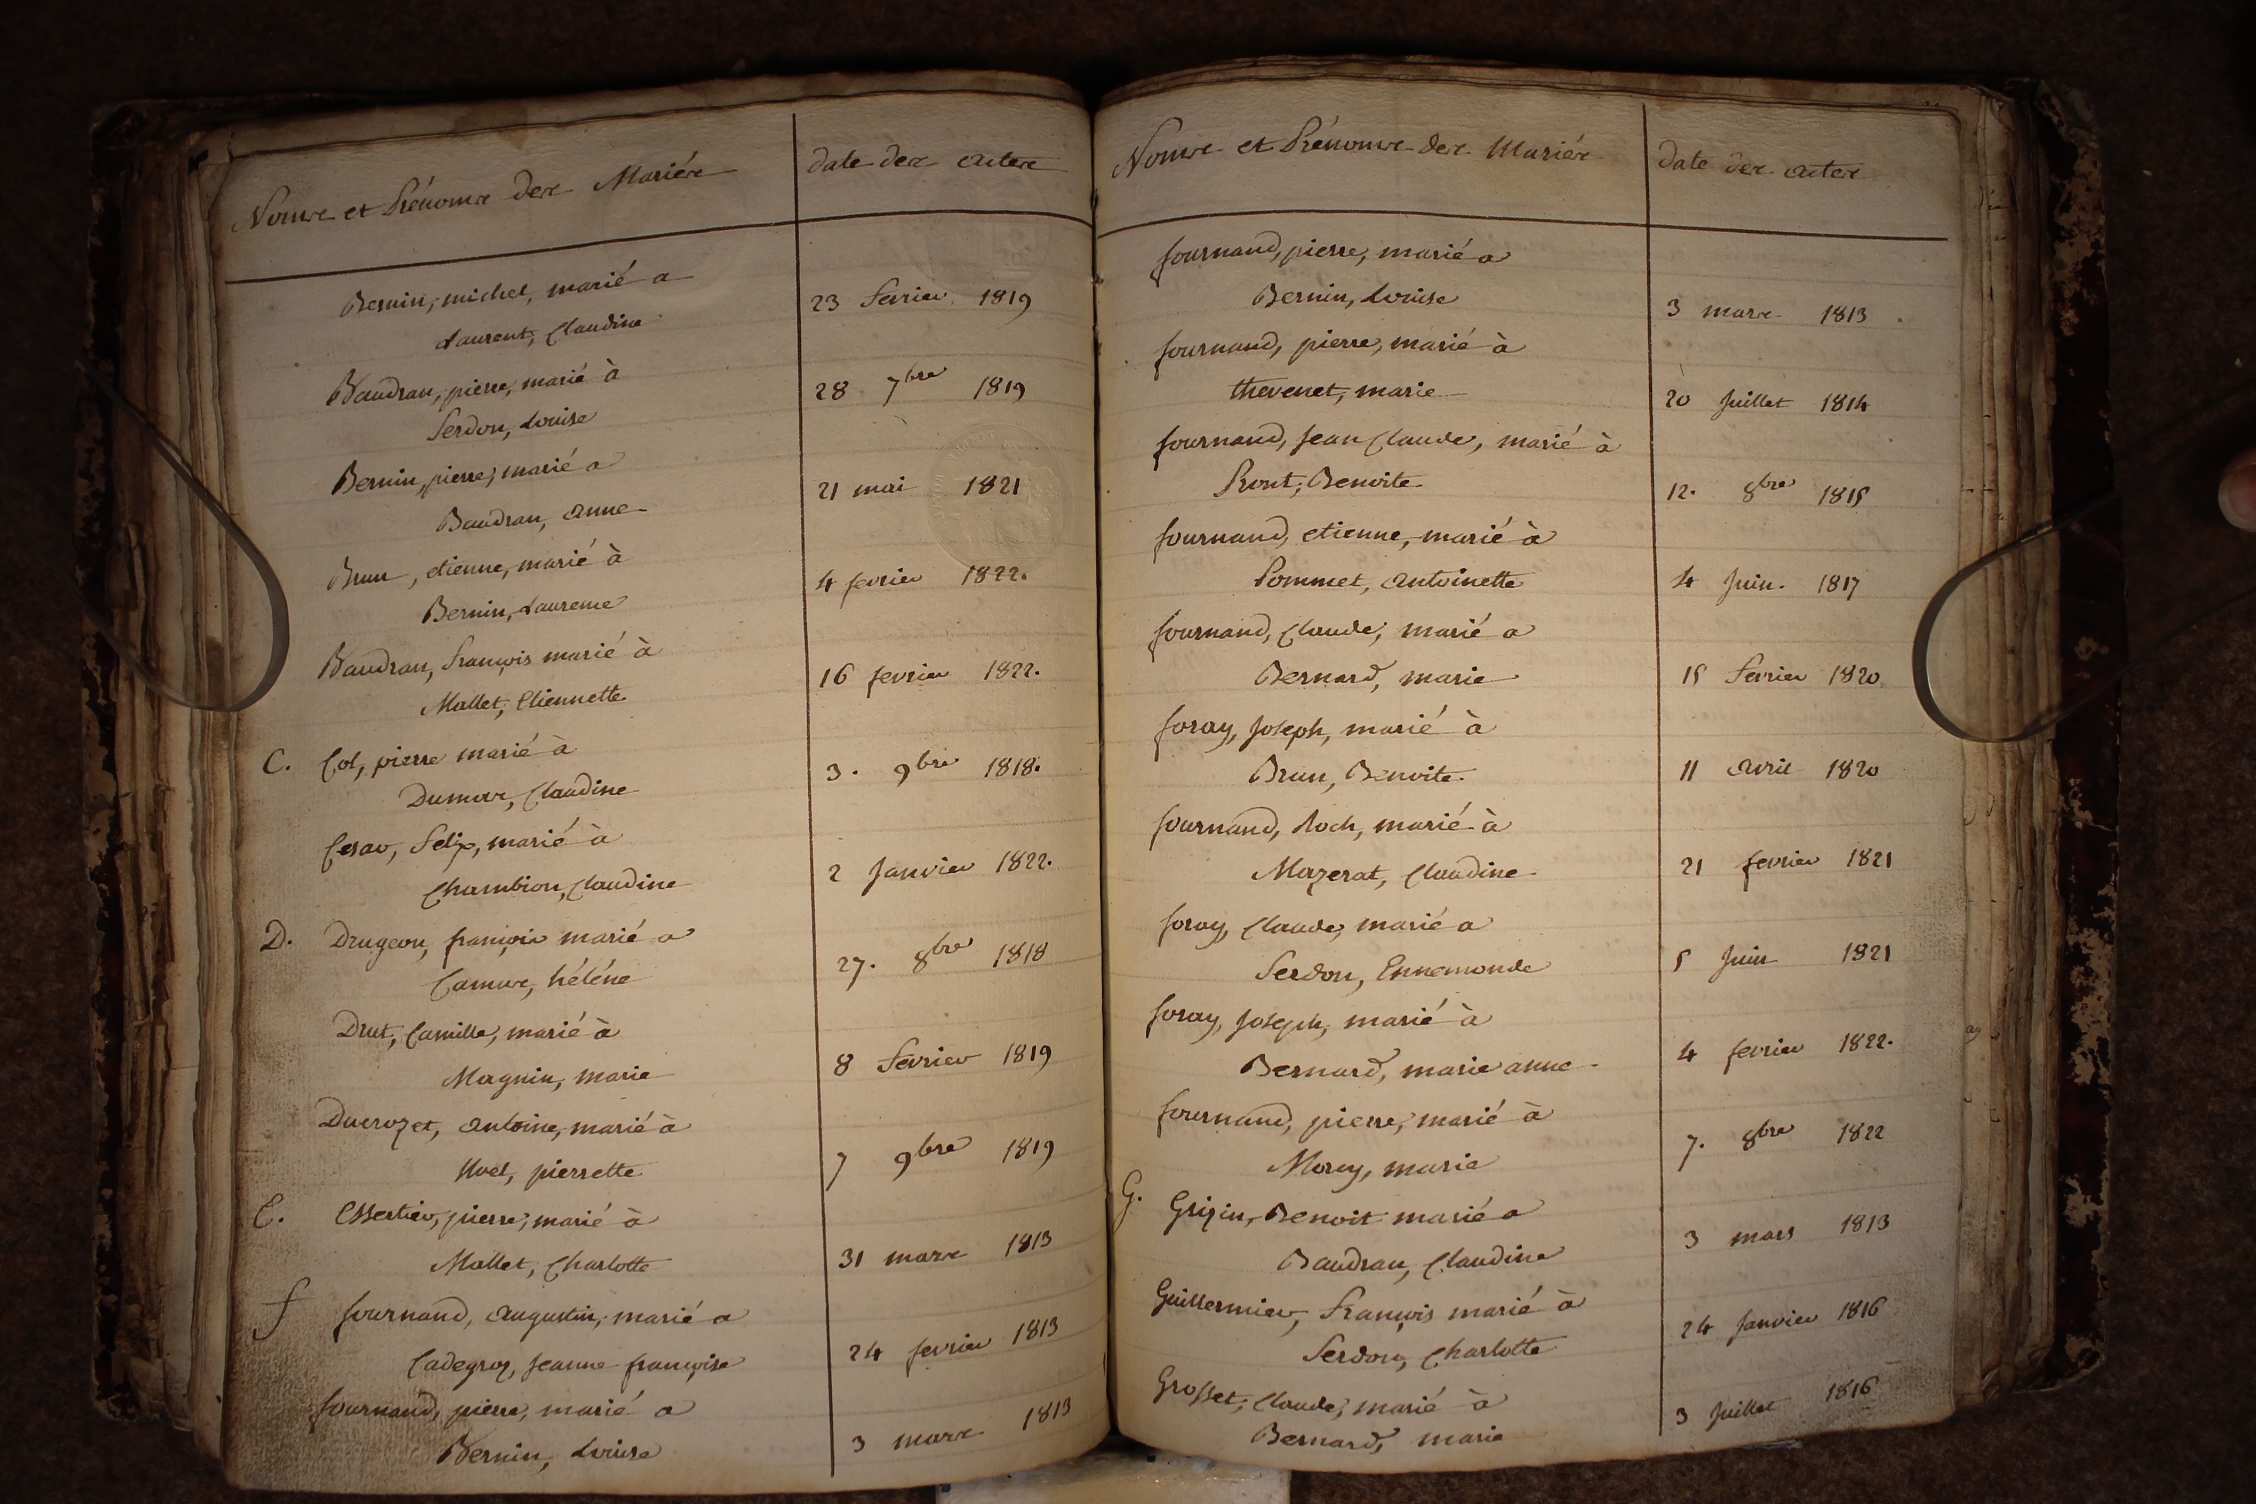 Noms et Prénoms des Mariés date des actes
Bernin, michel, marié a
Laurent, Claudine 23 fevrier 1819
Baudran, pierre, marié à
Serdon, Louise 28 7bre 1819
Bernin, pierre, marié a
Baudran, anne 21 mai 1821
Brun, etienne, marié à
Bernin, Laurence 4 fevrier 1822.
Baudran, François marié à
Mallet, Etiennette 16 fevrier 1822.
C. Col, pierre marié à
Dumas, Claudine 3. 9bre 1818.
Cesar, Felix, marié à
Chambion, Claudine 2 Janvier 1822.
D. Drugeon, françois marié a
Camus, héléne 27. 8bre 1818
Drut, Camille, marié à
Magnin, marie 8 Fevrier 1819
Ducrozet, antoine, marié à
Uvet, pierrette 7 9bre 1819
E. Essertier, pierre, marié à
Mallet, Charlotte 31 mars 1813
f fournand, augustin, marié a
Cadegroz, Jeanne françoise 24 fevrier 1813
fournand, pierre, marié a
Bernin, Louise 3 mars 1813
Noms et Prénoms des Mariés date des actes
fournand, pierre, marié a
Bernin, Louise 3 mars 1813
fournand, pierre, marié à
thevenet, marie 20 Juillet 1814
fournand, Jean Claude, marié à
Pront, Benoite 12. 8bre 1815
fournand, etienne, marié à
Pommet, antoinette 4 Juin. 1817
fournand, Claude, marié a
Bernard, marie 15 Fevrier 1820
foray, Joseph, marié à
Brun, Benoite. 11 avril 1820
fournand, Roch, marié à
Mazerat, Claudine 21 fevrier 1821
foray, Claude, marié a
Serdon, Ennemonde 5 Juin 1821
foray, Joseph, marié à
Bernard, marie anne 4 fevrier 1822.
fournand, pierre, marié à
Morey, marie 7. 8bre 1822
G. Grizin, Benoit marié a
Baudran, Claudine 3 mars 1813
Guillermier, François marié à
Serdon, Charlotte 24 Janvier 1816
Grosset, Claude, marié à
Bernard, marie 3 Juillet 1816